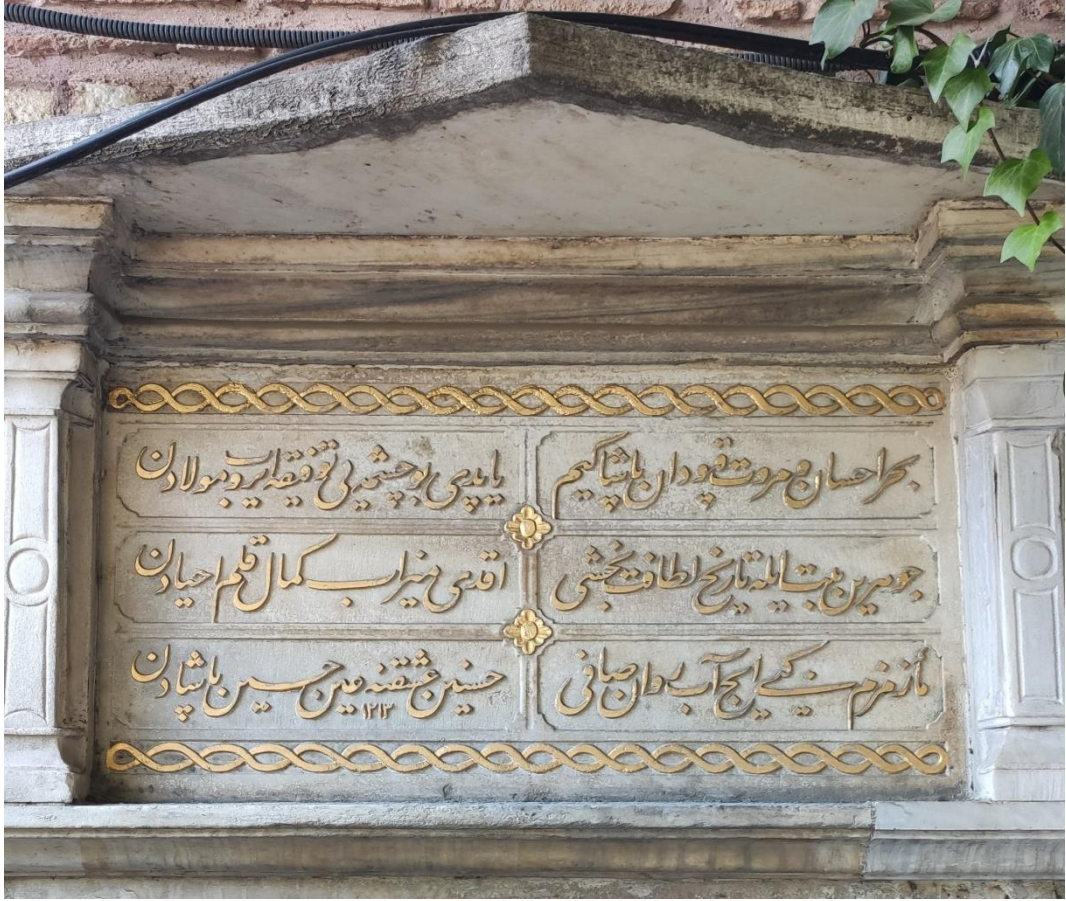 بحر احسان و مروت قپودان پاشا كیم
یاپدی بو چشمه یی توفیقله اول مولادن
جوهرین بیت ایله تاریخ لطافت بخشی
آقدی میزاب كمال قلم احیادن
ماء زمزم كبی ایچ آب روان صافی
حسنین عشقنه عین حسین پاشادن
١٢١٣